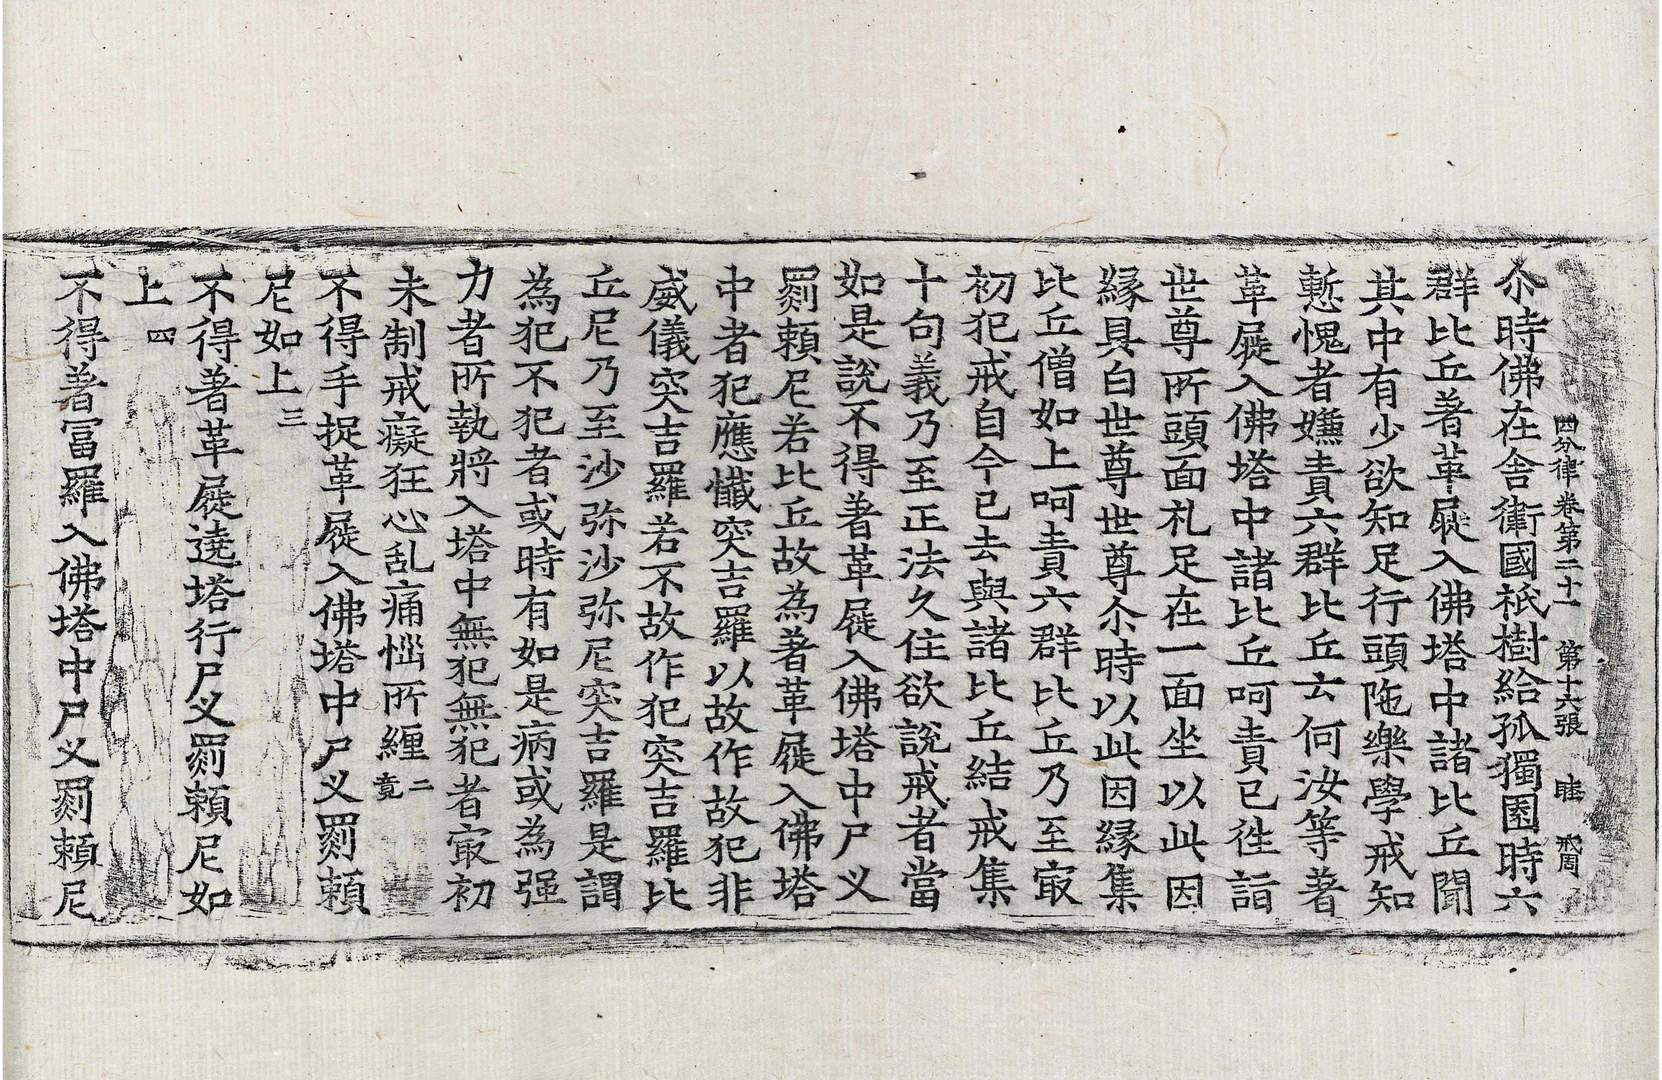 四分律卷第二十一 第十六張 睡 戒周
尒時佛在舍衛國祇樹給孤獨園時六
群比丘著革屣入佛塔中諸比丘聞
其中有少欲知足行頭陁樂學戒知
慙愧者嫌責六群比丘云何汝等著
革屣入佛塔中諸比丘呵責已往詣
世尊所頭面礼足在一面坐以此因
緣具白世尊世尊尒時以此因緣集
比丘僧如上呵責六群比丘乃至㝡
初犯戒自今已去與諸比丘結戒集
十句義乃至正法久住欲說戒者當
如是說不得著革屣入佛塔中尸叉
罽賴尼若比丘故為著革屣入佛塔
中者犯應懺突吉羅以故作故犯非
威儀突吉羅若不故作犯突吉羅比
丘尼乃至沙弥沙弥尼突吉羅是謂
為犯不犯者或時有如是病或為强
力者所執將入塔中無犯無犯者㝡初
未制戒癡狂心乱痛惱所纏二竟
不得手捉革屣入佛塔中尸叉罽賴
尼如上三
不得著革屣遶塔行尸叉罽賴尼如
上四
不得著冨羅入佛塔中尸叉罽賴尼